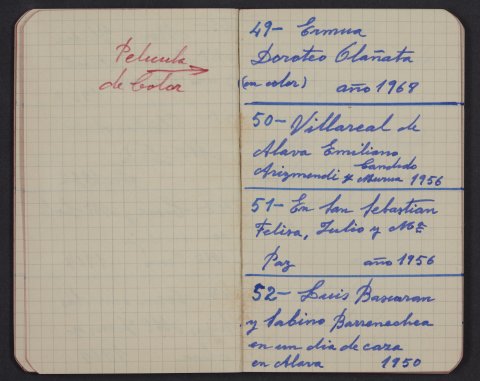 Pelicula
de Color
49- Ermua
Doroteo Olañata
(en color) año 1968
50- Villareal de
Alava Emiliano
Arizmendi y Candido
Murua 1956
51- En San Sebastian
Felisa, Julio y Mª
Paz año 1956
52- Luis Bascaran
y Sabino Barrenechea
en un dia de caza
en Alava 1950